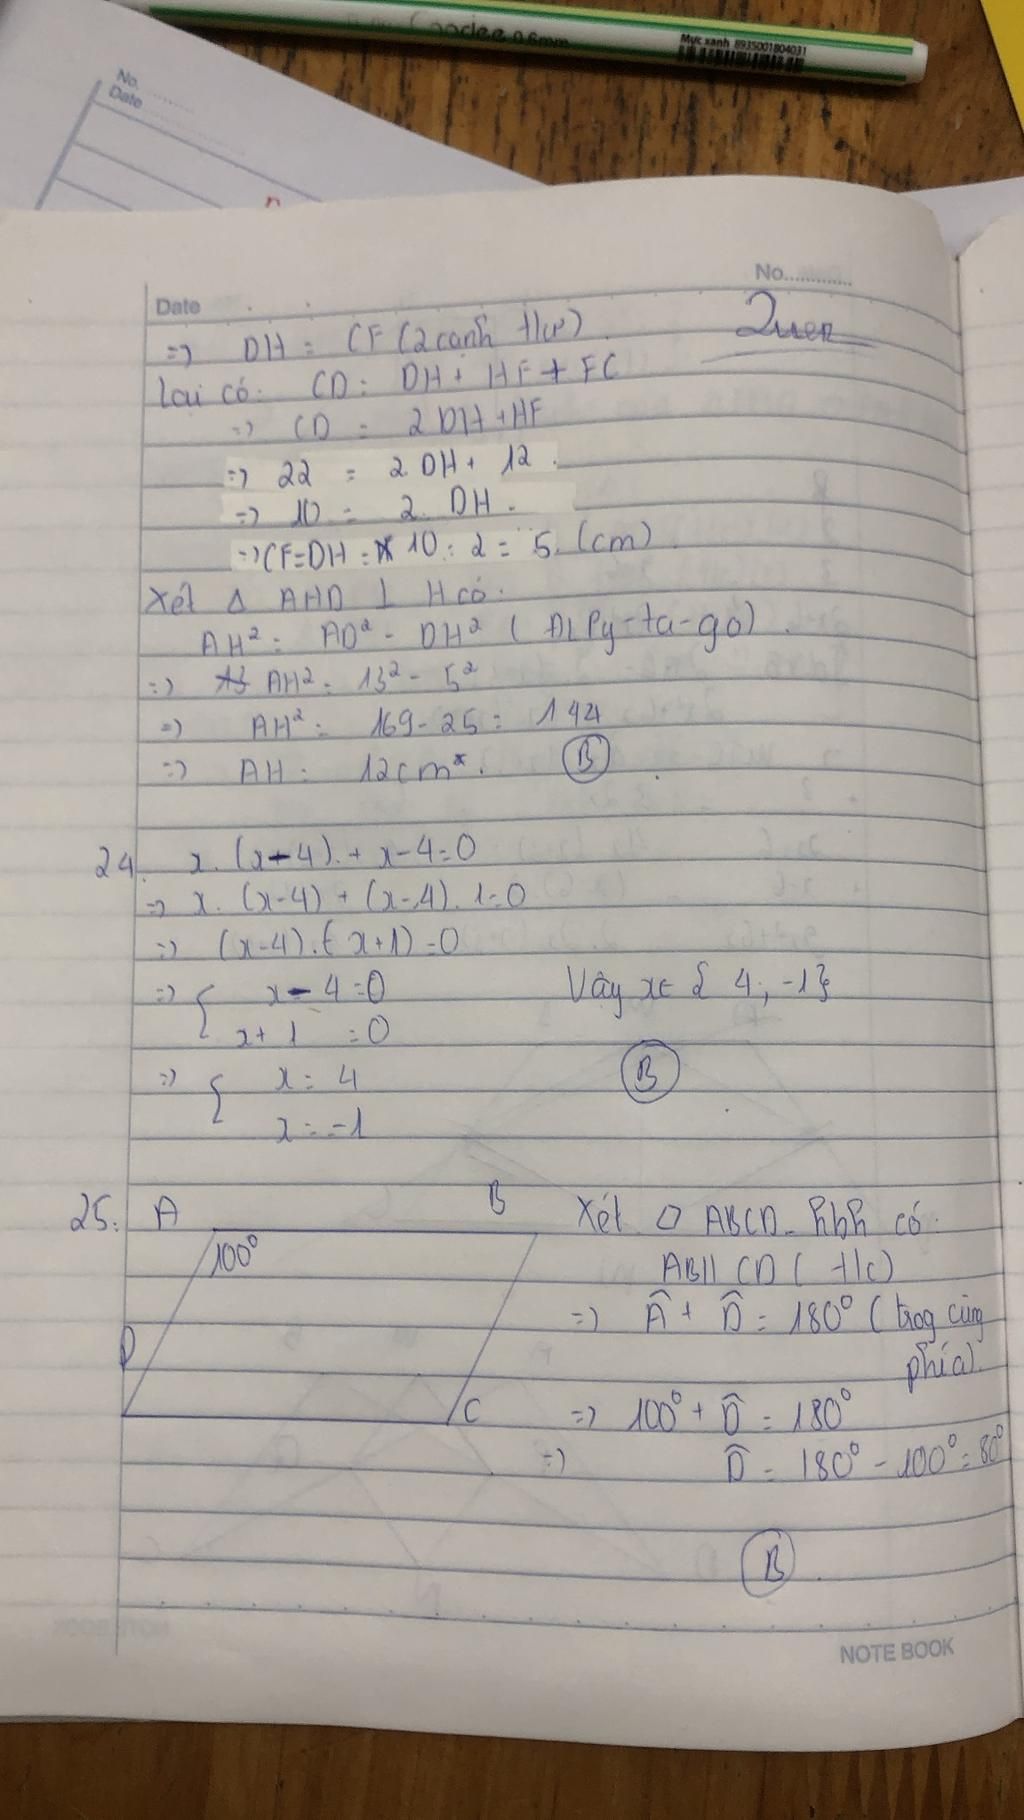 Mực xanh 8935001804031
0.6mm
No.
Date
No.
Date
Quen
=> DH = CF (2 cạnh t/ư)
Lại có: CD = DH + HF + FC
=> CD = 2DH + HF
=> 22 = 2.DH + 12.
=> 10 = 2. DH.
=> CF=DH = 10 : 2 = 5. (cm)
Xét Δ AHD ⊥ H có:
AH² = AD² - DH² (ĐL Py-ta-go).
=> AH² = 13² - 5²
=> AH² = 169 - 25 = 144
=> AH = 12cm. B
24. x. (x-4). + x-4=0
=> x. (x-4) + (x-4). 1=0
=> (x-4).(x+1)=0
=> { x-4=0 Vậy x∈ { 4; -1}
x+1 =0
=> { x = 4 B
x = -1
25. A B Xét ▱ ABCD hbh có:
100° AB// CD ( t/c)
=> Â + D̂ = 180° (trog cùng
D phía).
C => 100° + D̂ = 180°
=> D̂ = 180° - 100° = 80°
B
NOTE BOOK